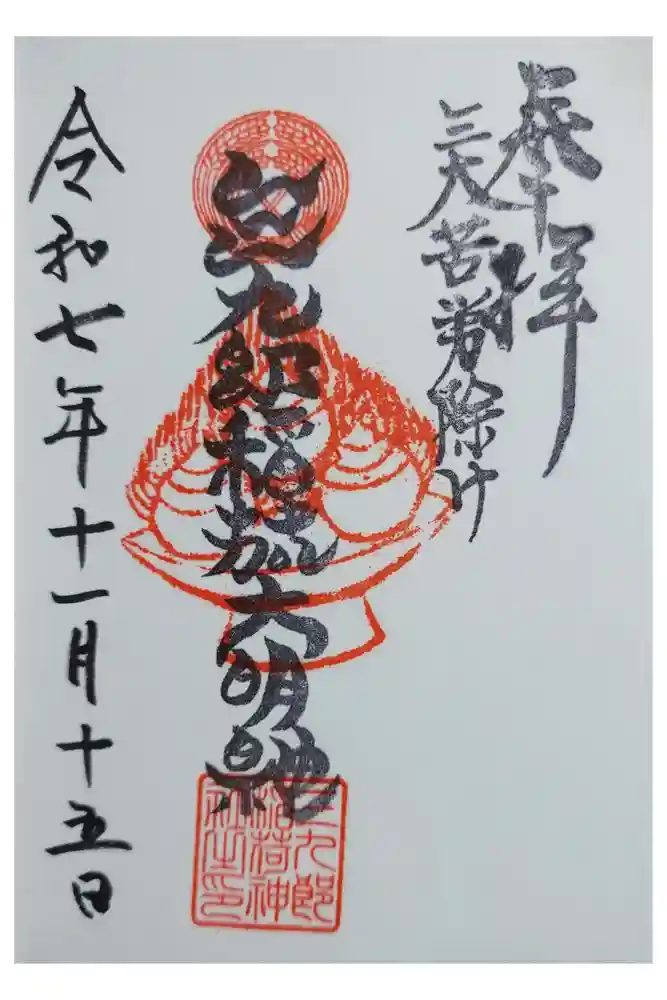 奉拝
三大苦労除け
三九郎稲荷大明神
令和七年十一月十五日
三九郎
稲荷神
社之印